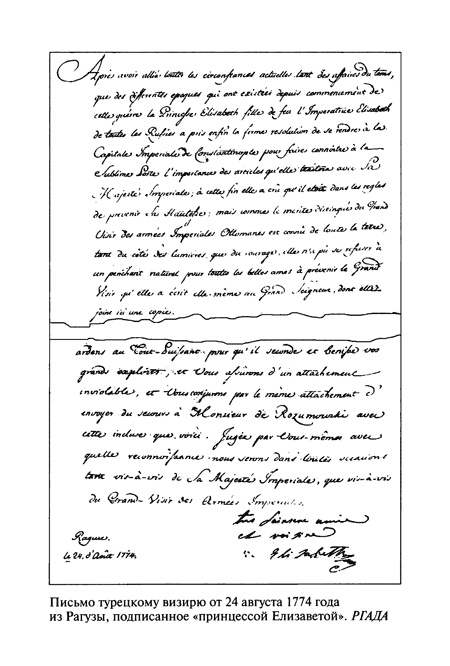 Après avoir allié toutes les circonstances actuelles tant des affaires du tems,
que des differentes époques qui ont existées depuis commencement de
cette guerre la Princesse Elisabeth fille de feu l'Imperatrice Elisabeth
de toutes les Russies a pris enfin la ferme resolution de se rendre à la
Capitale Imperiale de Constantinople pour faire connoître à la
Sublime Porte l'importance des articles qu'elle traitera avec Sa
Majesté Imperiale; à cette fin elle a crû qu'il étoit dans les regles
de prevenir Sa Hautesse: mais comme le merite distingué du Grand
Visir des armées Imperiales Ottomanes est connû de toute la terre,
tant du côté des lumieres, que du courage, elle n'a pû se refuser à
un penchant naturel pour toutes les belles ames à prévenir le Grand
Visir qu'elle a écrit elle-même au Grand Seigneur, dont
joint ici une copie.
ardens au Tout-Puissant pour qu'il seconde et benisse vos
grands exploits; et Vous assûrons d'un attachement
inviolable, et Vous conjurons par le même attachement d'
envoyer du secours à Monsieur de Rozumowski avec
cette incluse que voici. Jugés par Vous-mêmes avec
quelle reconnoissance nous serons dans toutes occasions
tant vis-à-vis de Sa Majesté Imperiale, que vis-à-vis
du Grand-Visir des Armées Imperiales.
amie
et voisine
Raguse. Elisabeth
le 24. d'Août 1774.
Письмо турецкому визирю от 24 августа 1774 года
из Рагузы, подписанное «принцессой Елизаветой». РГАДА